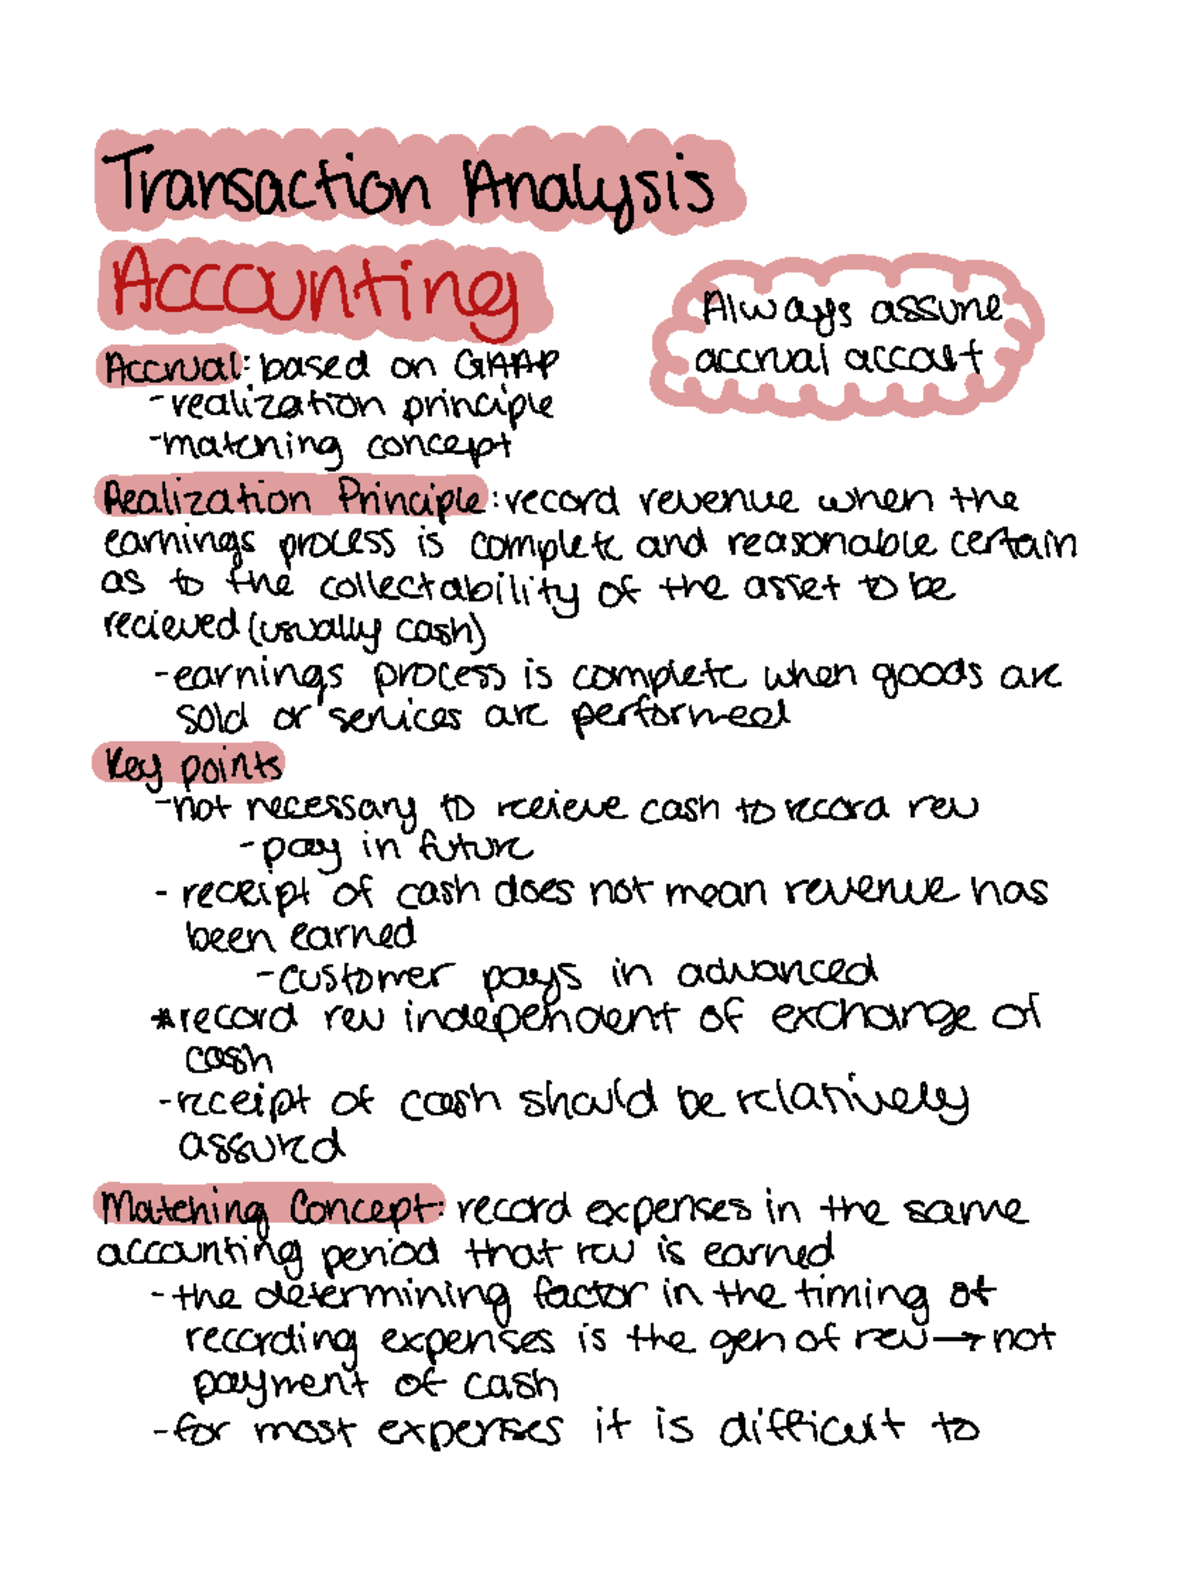 Transaction Analysis
Accounting
Always assume
accrual accout
Accrual: based on GAAP
-realization principle
-matching concept
Realization Principle: record revenue when the
earnings process is complete and reasonable certain
as to the collectability of the asset to be
recieved (usually cash)
-earnings process is complete when goods are
sold or services are performed
Key points
-not necessary to receieve cash to record rev
-pay in future
- receipt of cash does not mean revenue has
been earned
-customer pays in advanced
*record rev independent of exchange of
cash
-receipt of cash should be relatively
assured
Matching Concept: record expenses in the same
accounting period that rev is earned
-the determining factor in the timing of
recording expenses is the gen of rev→not
payment of cash
-for most expenses it is difficult to